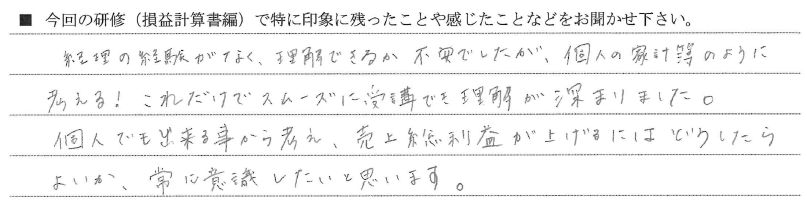 ■ 今回の研修（損益計算書編）で特に印象に残ったことや感じたことなどをお聞かせ下さい。
経理の経験がなく、理解できるか不安でしたが、個人の家計簿のように
考える！これだけでスムーズに受講でき理解が深まりました。
個人でも出来る事から考え、売上総利益が上げるにはどうしたら
よいか、常に意識したいと思います。